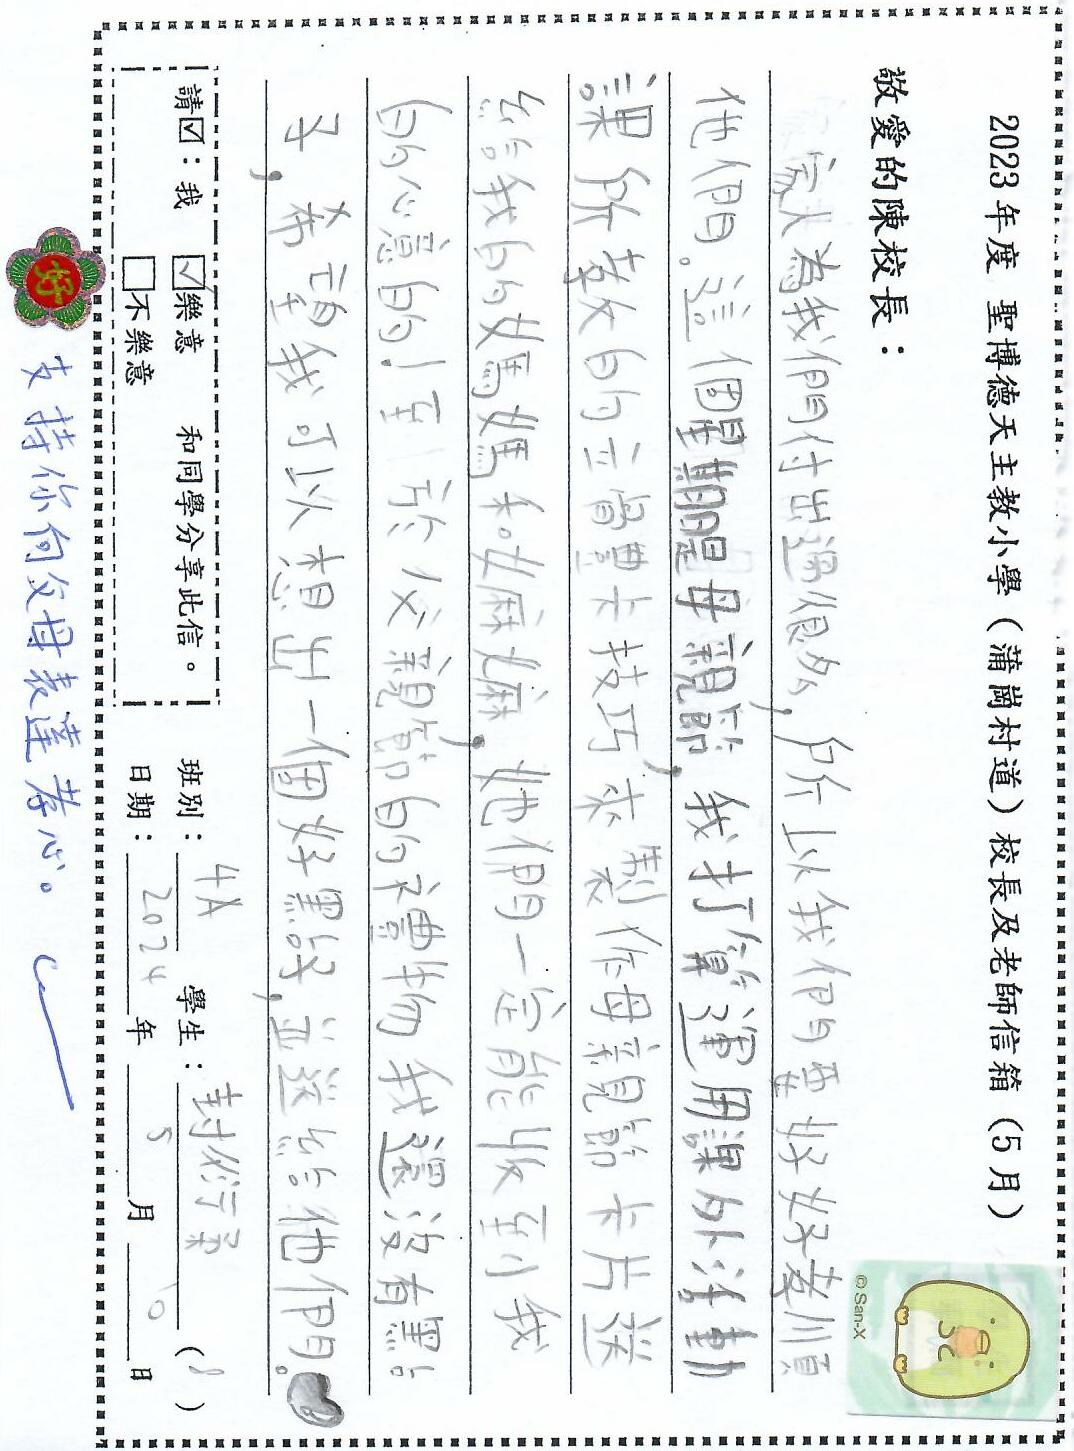 2023年度 聖博德天主教小學（蒲崗村道）校長及老師信箱（5月）
敬愛的陳校長：
家人為我們付出過很多，所以我們要好好孝順
他們。這個星期是母親節，我打算運用課外活動
課所教的立體賀卡技巧來製作母親節卡片送
給我的媽媽和嫲嫲，她們一定能收到我
的心意的！至於父親節的禮物我還沒有點
子，希望我可以想出一個好點子，並送給他們。
請☑：我 ☑樂意 和同學分享此信。
☐不樂意
班別：4A 學生：封 (8)
日期：2024年5月10日
好
支持你向父母表達孝心。
© San-X